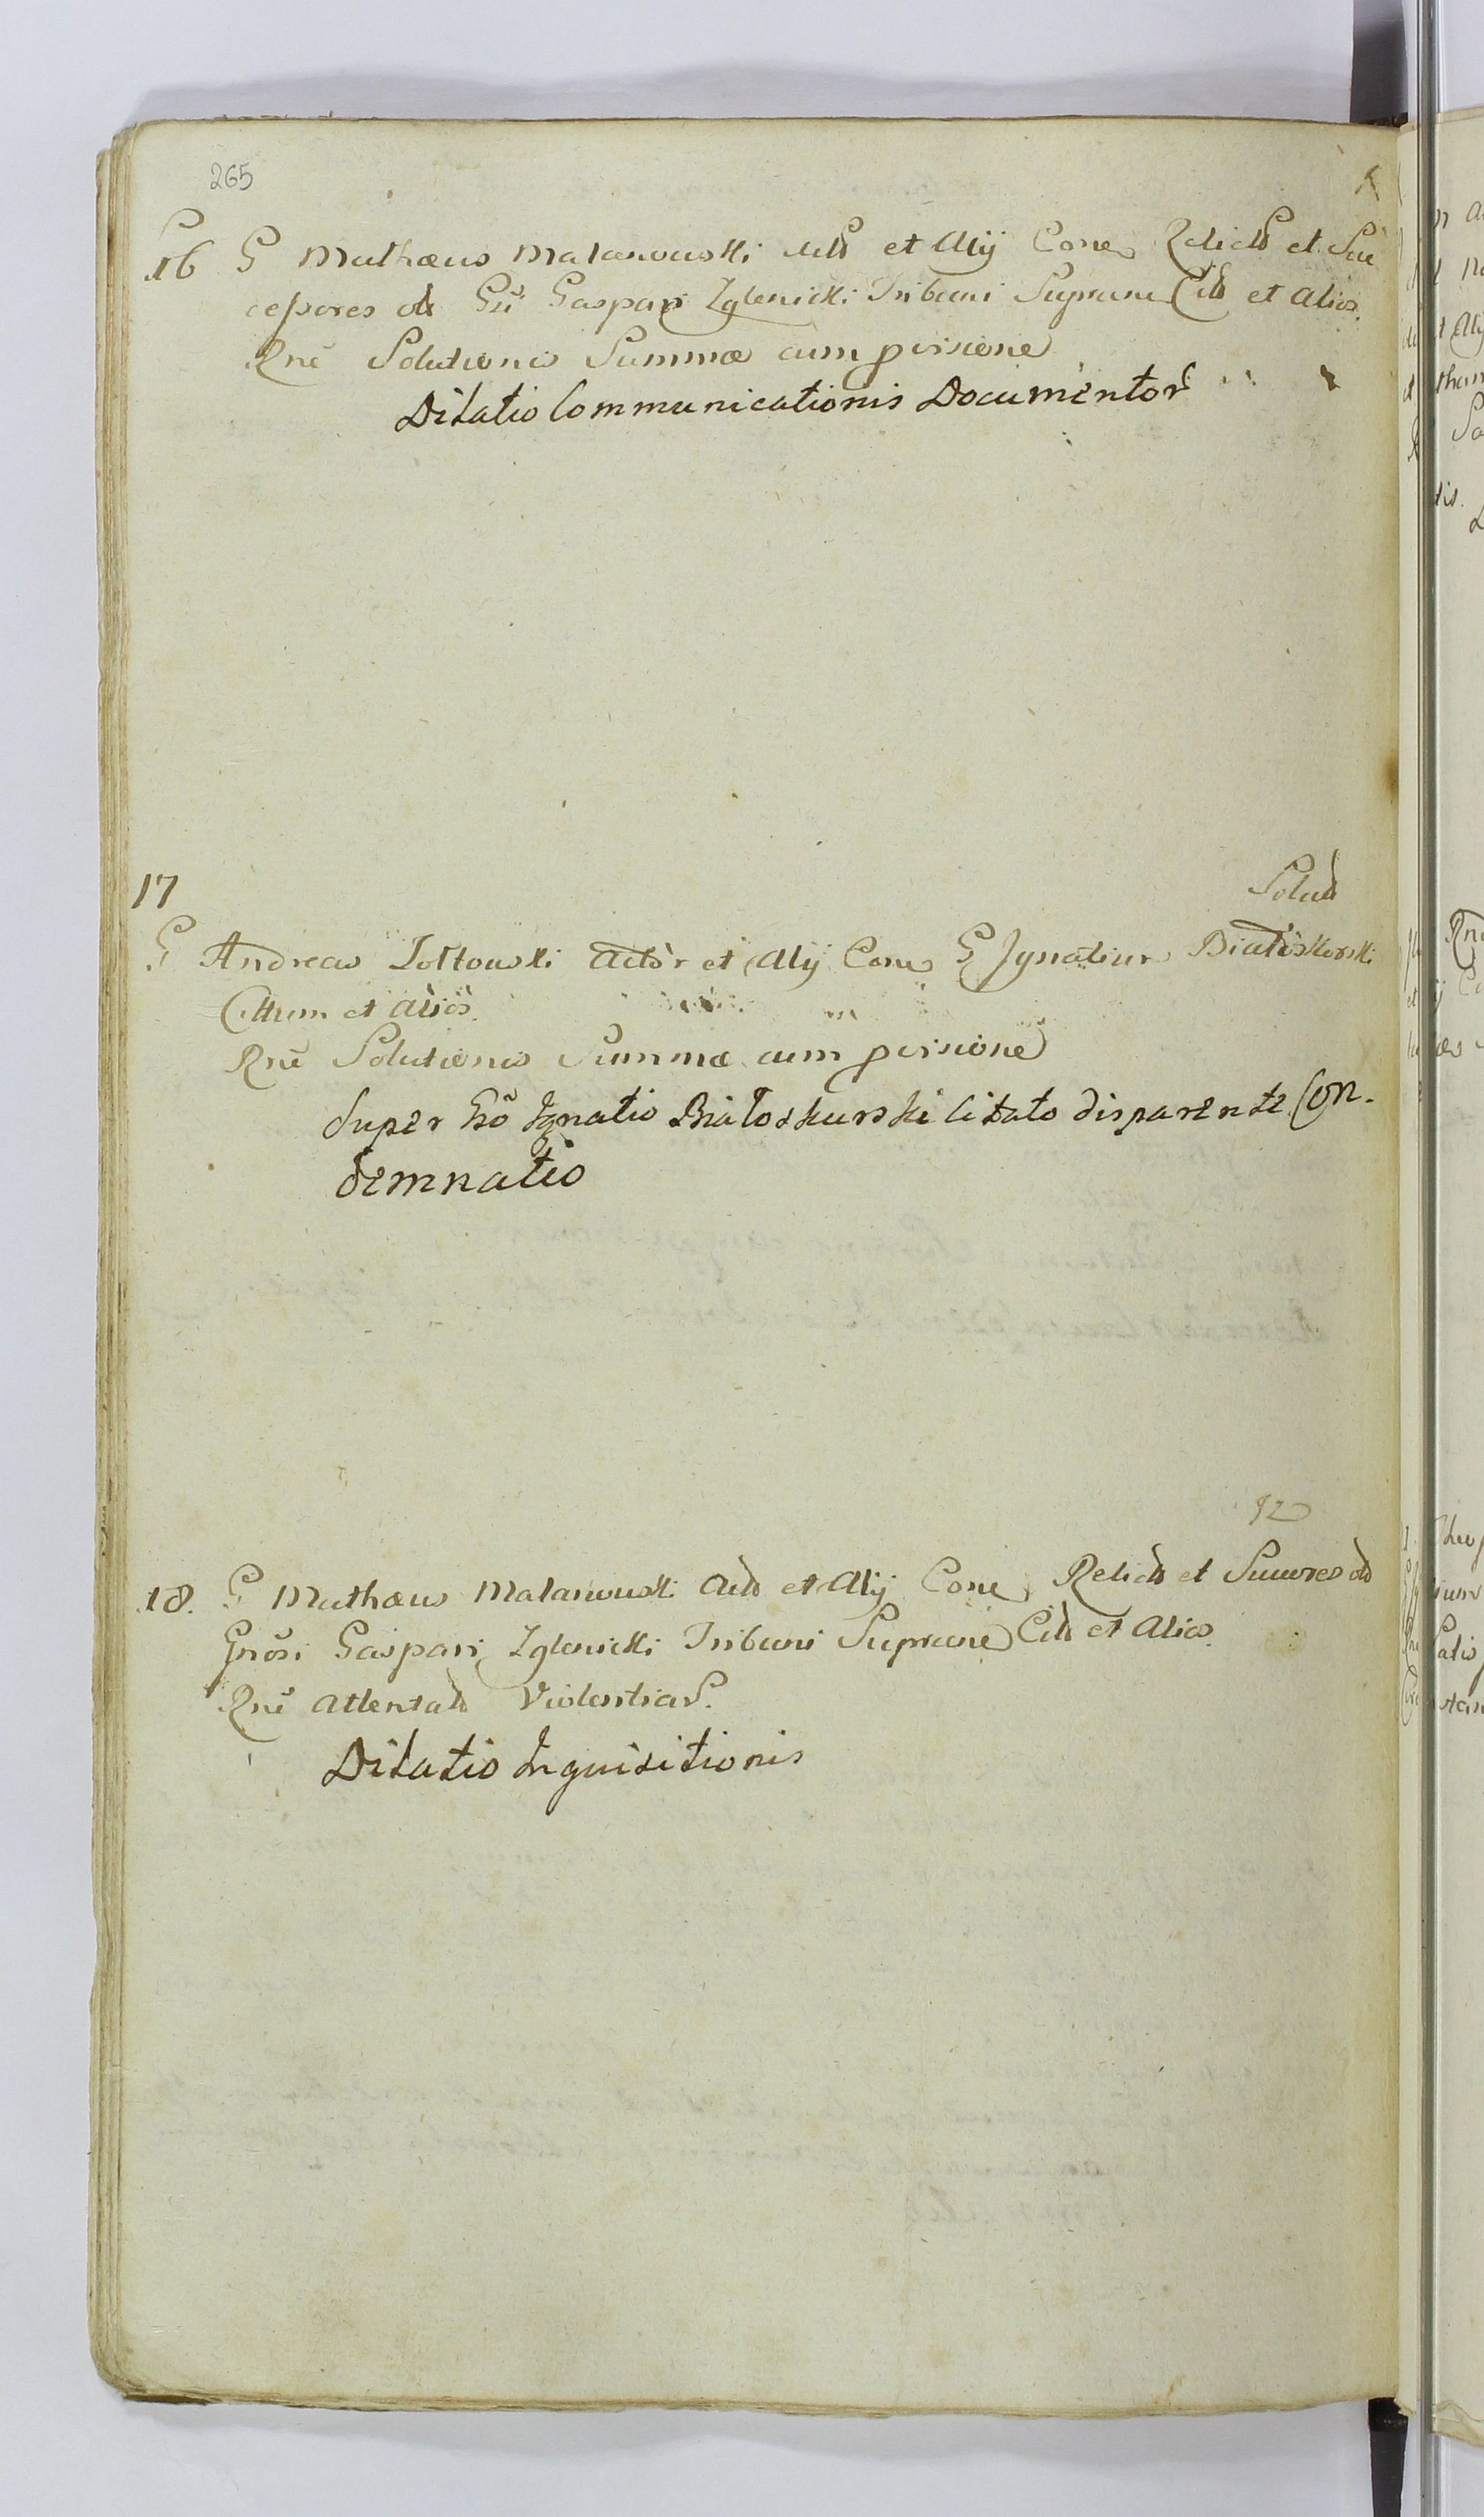 265
16 G Mathæus Malanowski Actr et Alij Cone Relictā et Suc
cessores olī Gsi Gaspari Zglenicki Tribuni Suprem Citt et Alios.
Rnē Solutionis Summæ cum provisione
Dilatio Communicationis Documentor
17
Solut
G Andreas Zołtowski Actor et Alij Cone G Ignatium Białoskorski
Cittum et Alios.
Rnē Solutionis Summæ cum provisione
Super Gso Ignatio Białoskurski Citato disparente Con-
demnatio
18. G Mathæus Malanowski Actr et Alij Cone Relict et Succres olī
Gnosi Gaspari Zglenicki Tribuni Supreme Citt et Alios.
Rnē Attentat Violentiar.
Dilatio Inquisitionis